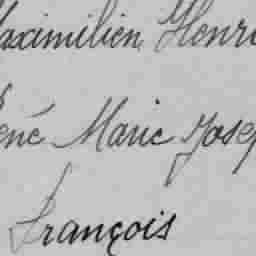 aximilien, Henri
ené Marie Josep
François